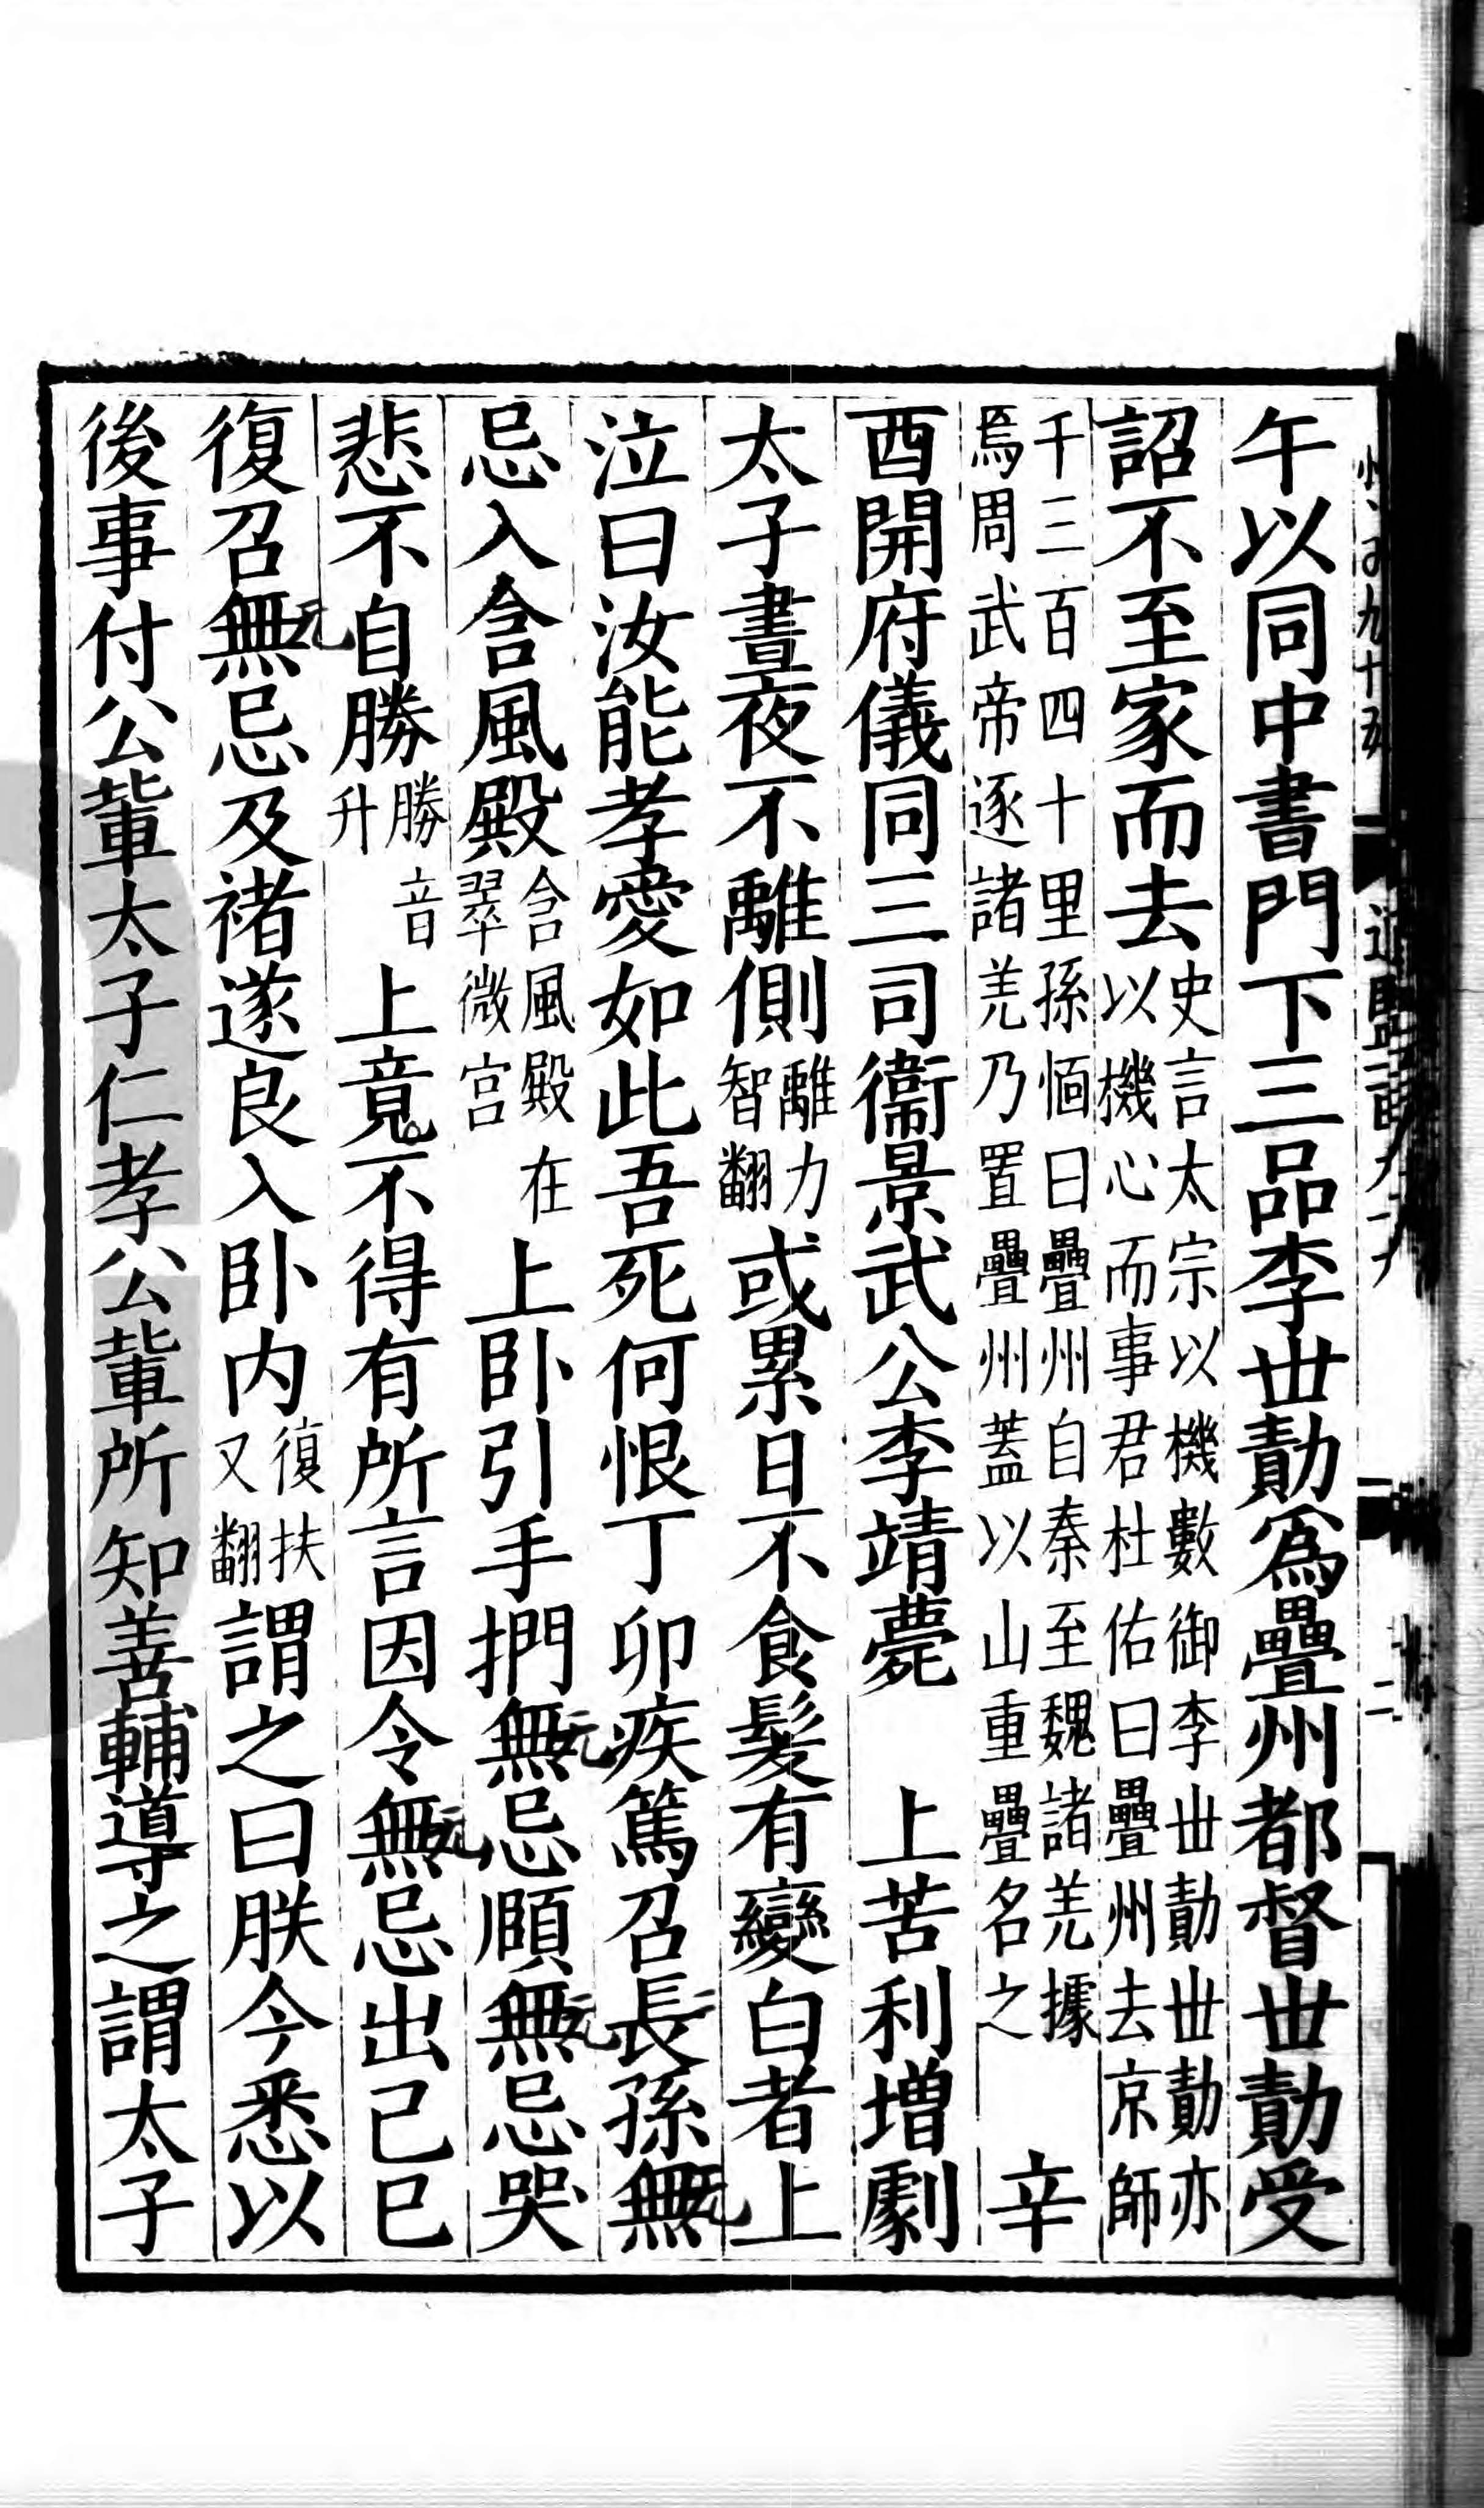 午以同中書門下三品李丗勣爲疊州都督丗勣受
詔不至家而去史言太宗以機數御李丗勣丗勣亦以機心而事君杜佑曰疊州去京師
千三百四十里孫愐曰疊州自秦至魏諸羌據焉周武帝逐諸羌乃置疊州蓋以山重疊名之辛
酉開府儀同三司衞景武公李靖薨上苦利增劇
太子晝夜不離側離力智翻或累日不食髮有變白者上
泣曰汝能孝愛如此吾死何恨丁卯疾篤召長孫無
忌入含風殿含風殿在翠微宮上卧引手捫無忌頤無忌哭
悲不自勝勝音升上竟不得有所言因令無忌出己巳
復召無忌及褚遂良入卧内復扶又翻謂之曰朕今悉以
後事付公輩太子仁孝公輩所知善輔導之謂太子